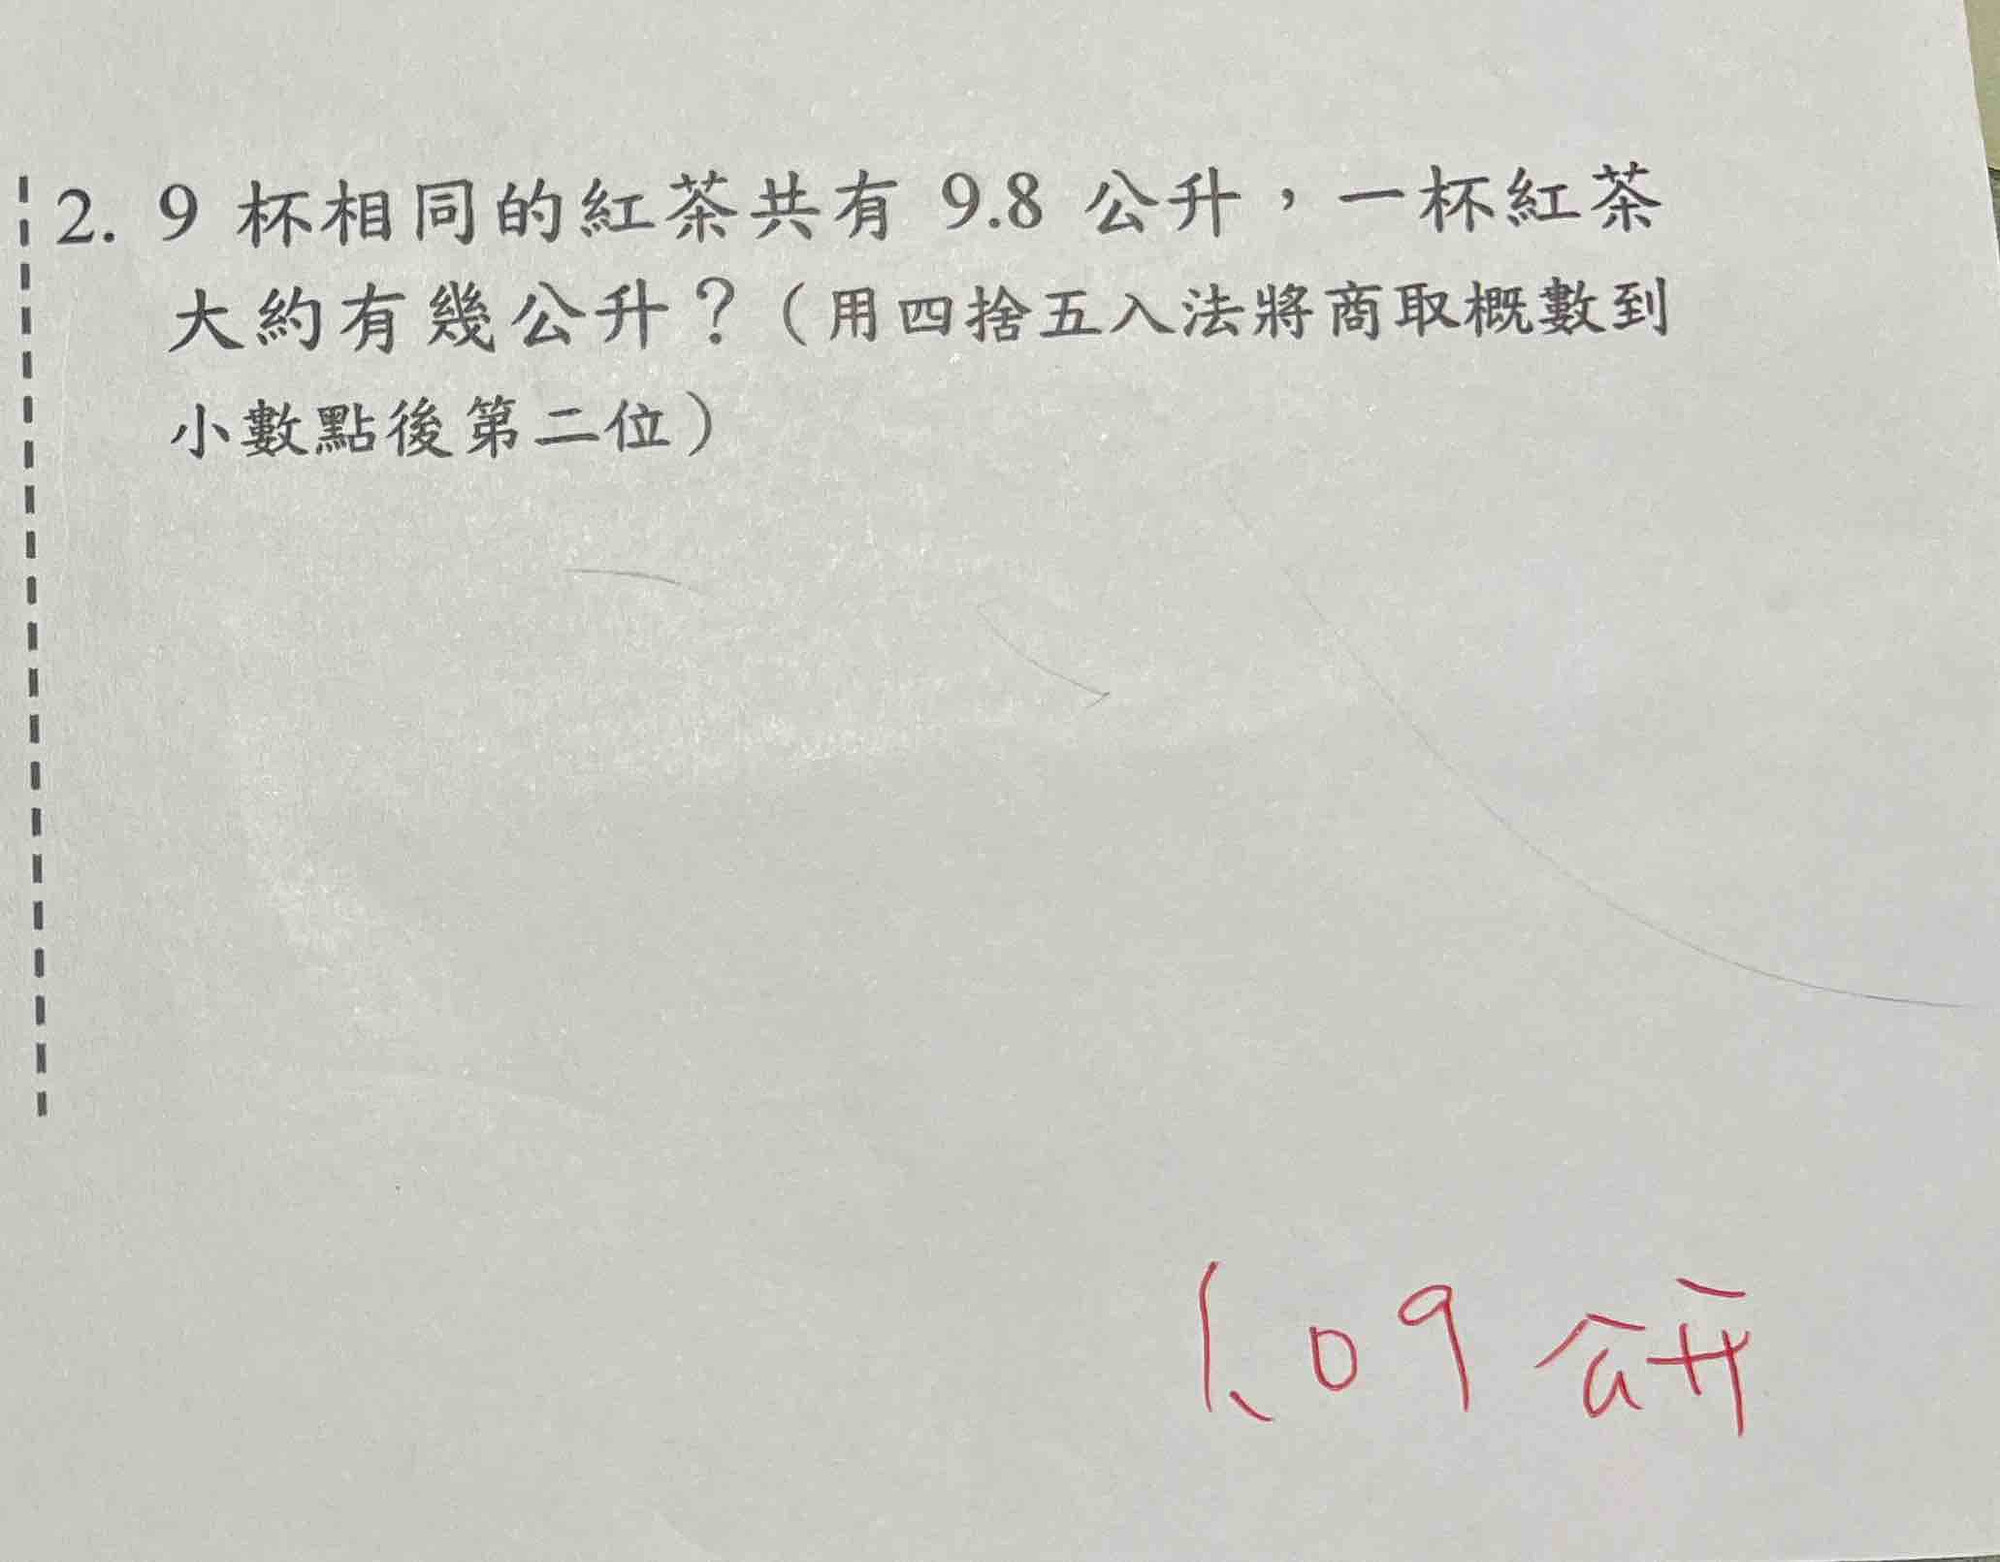 2. 9 杯相同的紅茶共有 9.8 公升，一杯紅茶
大約有幾公升？（用四捨五入法將商取概數到
小數點後第二位）
1.09 公升